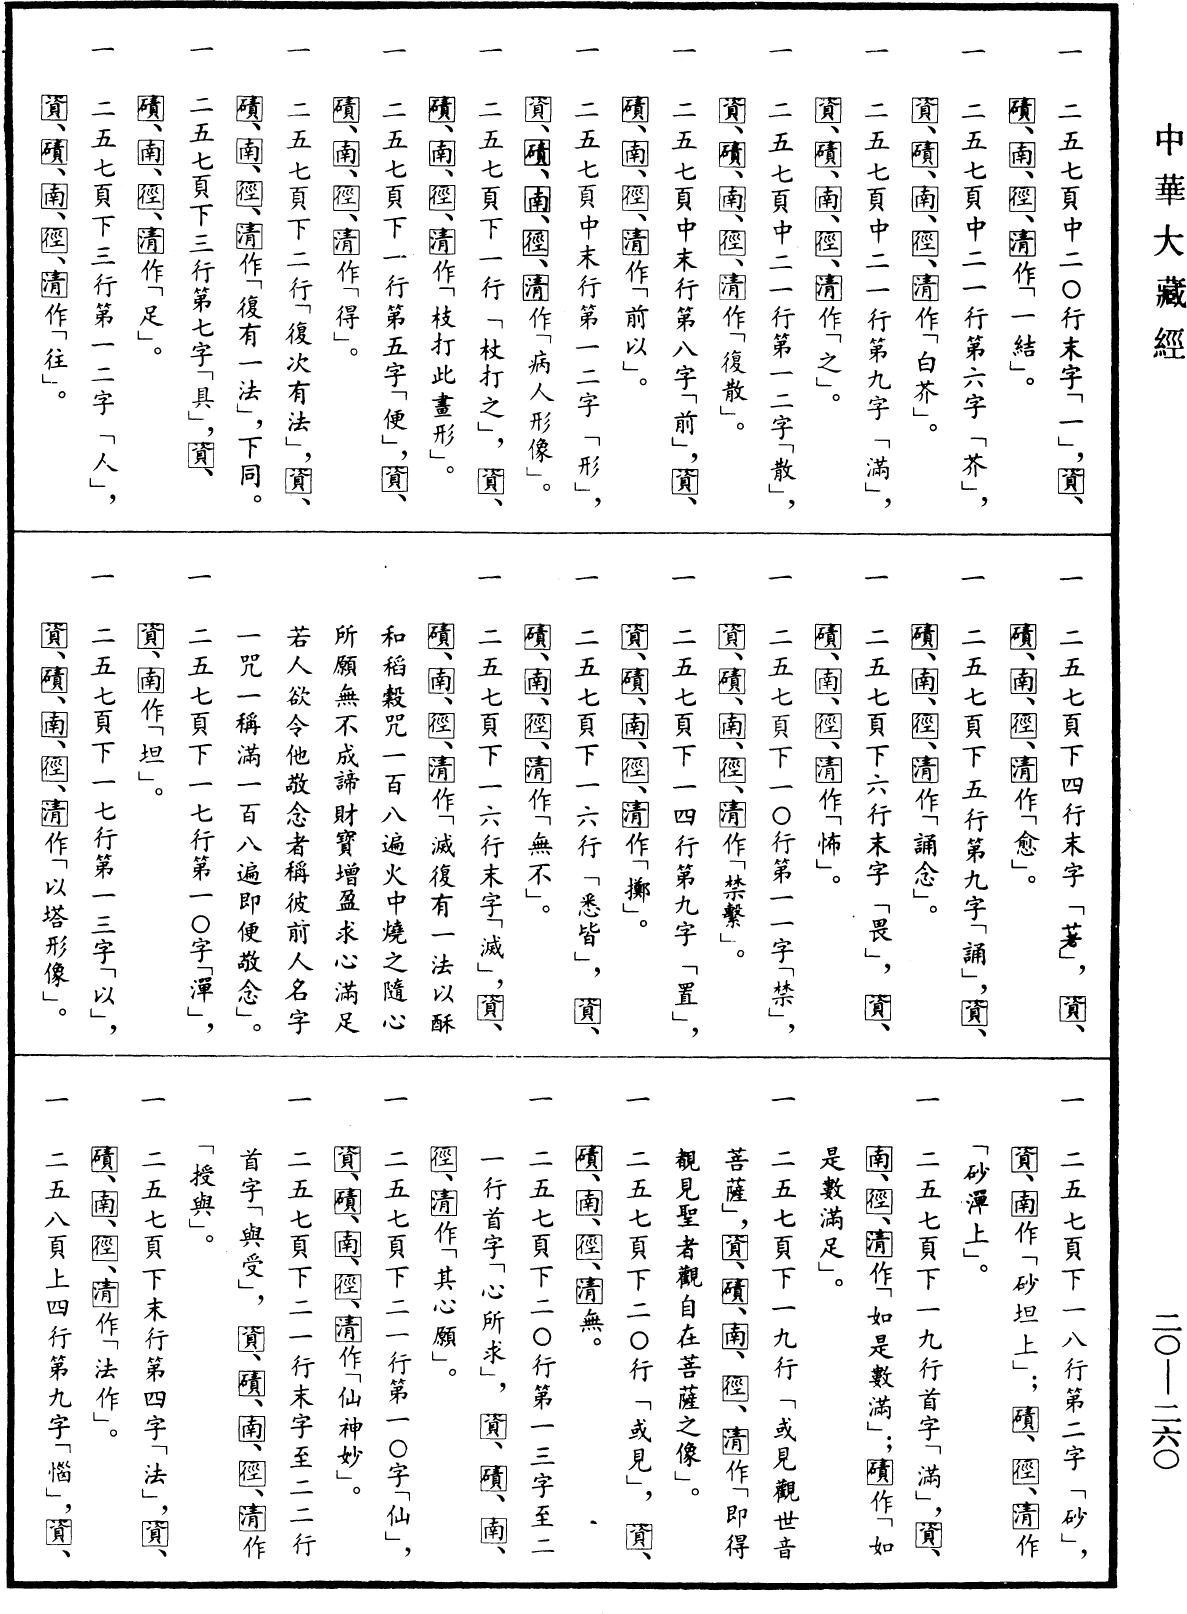 中華大藏經
二〇—二六〇
一 二五七頁中二〇行末字「一」，資、
磧、南、徑、清作「一結」。
一 二五七頁中二一行第六字「芥」，
資、磧、南、徑、清作「白芥」。
一 二五七頁中二一行第九字「滿」，
資、磧、南、徑、清作「之」。
一 二五七頁中二一行第一二字「散」，
資、磧、南、徑、清作「復散」。
一 二五七頁中末行第八字「前」，資、
磧、南、徑、清作「前以」。
一 二五七頁中末行第一二字「形」，
資、磧、南、徑、清作「病人形像」。
一 二五七頁下一行「杖打之」，資、
磧、南、徑、清作「枝打此畫形」。
一 二五七頁下一行第五字「便」，資、
磧、南、徑、清作「得」。
一 二五七頁下二行「復次有法」，資、
磧、南、徑、清作「復有一法」，下同。
一 二五七頁下三行第七字「具」，資、
磧、南、徑、清作「足」。
一 二五七頁下三行第一二字「人」，
資、磧、南、徑、清作「往」。
一 二五七頁下四行末字「著」，資、
磧、南、徑、清作「愈」。
一 二五七頁下五行第九字「誦」，資、
磧、南、徑、清作「誦念」。
一 二五七頁下六行末字「畏」，資、
磧、南、徑、清作「怖」。
一 二五七頁下一〇行第一一字「禁」，
資、磧、南、徑、清作「禁繫」。
一 二五七頁下一四行第九字「置」，
資、磧、南、徑、清作「擲」。
一 二五七頁下一六行「悉皆」，資、
磧、南、徑、清作「無不」。
一 二五七頁下一六行末字「滅」，資、
磧、南、徑、清作「滅復有一法以酥
和稻穀咒一百八遍火中燒之隨心
所願無不成諦財寶增盈求心滿足
若人欲令他敬念者稱彼前人名字
一咒一稱滿一百八遍即便敬念」。
一 二五七頁下一七行第一〇字「潬」，
資、南作「坦」。
一 二五七頁下一七行第一三字「以」，
資、磧、南、徑、清作「以塔形像」。
一 二五七頁下一八行第二字「砂」，
資、南作「砂坦上」；磧、徑、清作
「砂潬上」。
一 二五七頁下一九行首字「滿」，資、
南、徑、清作「如是數滿」；磧作「如
是數滿足」。
一 二五七頁下一九行「或見觀世音
菩薩」，資、磧、南、徑、清作「即得
覩見聖者觀自在菩薩之像」。
一 二五七頁下二〇行「或見」，資、
磧、南、徑、清無。
一 二五七頁下二〇行第一三字至二
一行首字「心所求」，資、磧、南、
徑、清作「其心願」。
一 二五七頁下二一行第一〇字「仙」，
資、磧、南、徑、清作「仙神妙」。
一 二五七頁下二一行末字至二二行
首字「與受」，資、磧、南、徑、清作
「授與」。
一 二五七頁下末行第四字「法」，資、
磧、南、徑、清作「法作」。
一 二五八頁上四行第九字「惱」，資、